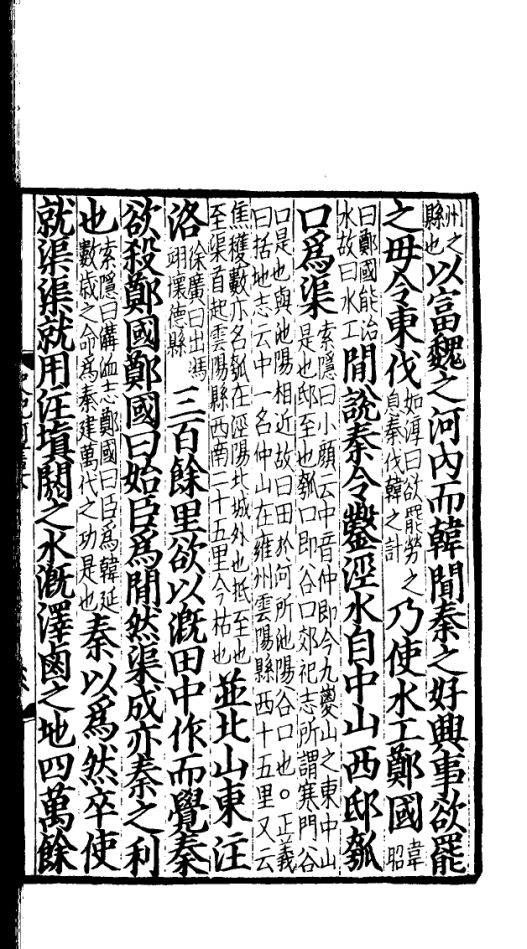 州之縣也以富魏之河内而韓聞秦之好興事欲罷
之毋令東伐如淳曰欲罷勞之息秦伐韓之計乃使水工鄭國韋昭
曰鄭國能治水故曰水工間說秦令鑿涇水自中山西邸瓠
口爲渠索隱曰小顏云中音仲即今九嵕山之東中山是也邸至也瓠口即谷口郊祀志所謂寒門谷
口是也與池陽相近故曰田於何所池陽谷口也。正義曰括地志云中一名仲山在雍州雲陽縣西十五里又云
焦穫藪亦名瓠在涇陽北城外也抵至也至渠首起雲陽縣西南二十五里今枯也並北山東注
洛徐廣曰出馮翊懷德縣三百餘里欲以溉田中作而覺秦
欲殺鄭國鄭國曰始臣爲間然渠成亦秦之利
也索隱曰溝洫志鄭國曰臣爲韓延數歲之命爲秦建萬代之功是也秦以爲然卒使
就渠渠就用注填閼之水溉澤鹵之地四萬餘